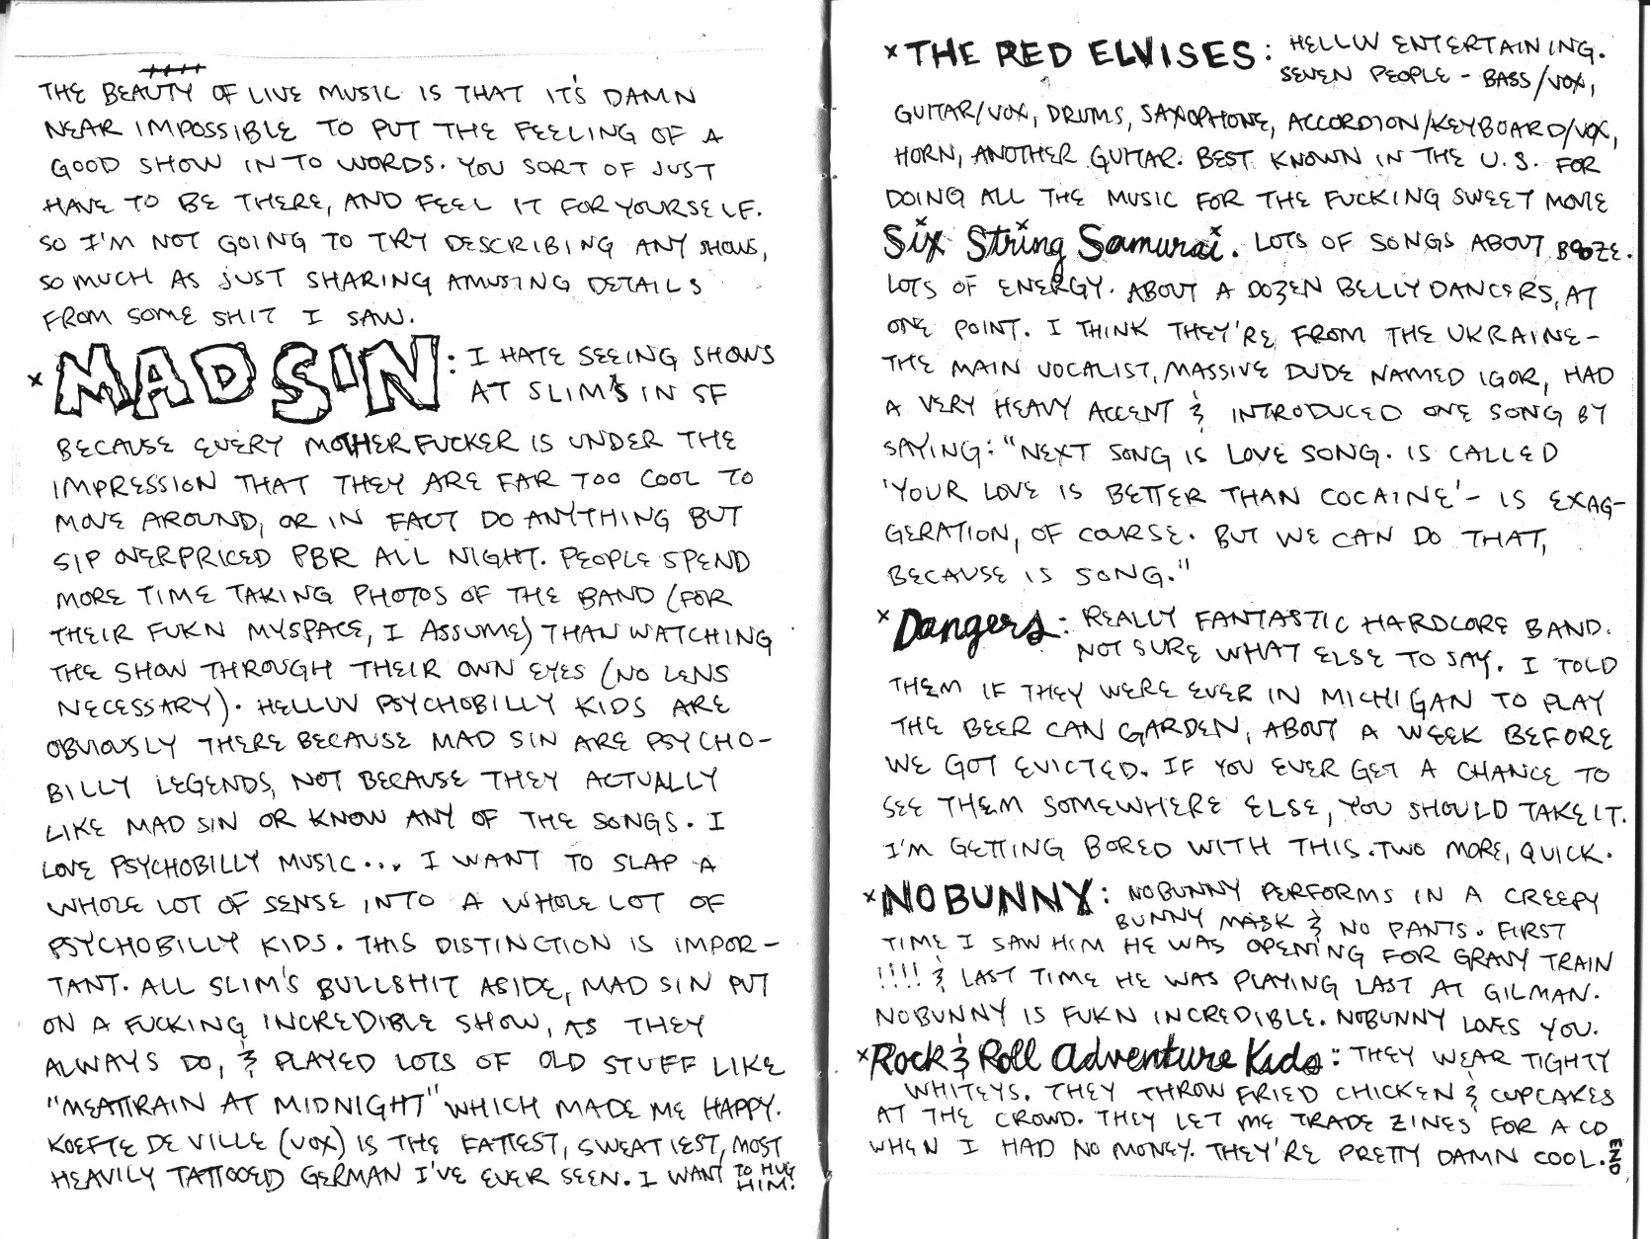 THE BEAUTY OF LIVE MUSIC IS THAT IT'S DAMN
NEAR IMPOSSIBLE TO PUT THE FEELING OF A
GOOD SHOW INTO WORDS. YOU SORT OF JUST
HAVE TO BE THERE, AND FEEL IT FOR YOURSELF.
SO I'M NOT GOING TO TRY DESCRIBING ANY SHOWS,
SO MUCH AS JUST SHARING AMUSING DETAILS
FROM SOME SHIT I SAW.
x MAD SIN: I HATE SEEING SHOWS
AT SLIM'S IN SF
BECAUSE EVERY MOTHERFUCKER IS UNDER THE
IMPRESSION THAT THEY ARE FAR TOO COOL TO
MOVE AROUND, OR IN FACT DO ANYTHING BUT
SIP OVERPRICED PBR ALL NIGHT. PEOPLE SPEND
MORE TIME TAKING PHOTOS OF THE BAND (FOR
THEIR FUKN MYSPACE, I ASSUME) THAN WATCHING
THE SHOW THROUGH THEIR OWN EYES (NO LENS
NECESSARY). HELLUV PSYCHOBILLY KIDS ARE
OBVIOUSLY THERE BECAUSE MAD SIN ARE PSYCHO-
BILLY LEGENDS, NOT BECAUSE THEY ACTUALLY
LIKE MAD SIN OR KNOW ANY OF THE SONGS. I
LOVE PSYCHOBILLY MUSIC... I WANT TO SLAP A
WHOLE LOT OF SENSE INTO A WHOLE LOT OF
PSYCHOBILLY KIDS. THIS DISTINCTION IS IMPOR-
TANT. ALL SLIM'S BULLSHIT ASIDE, MAD SIN PUT
ON A FUCKING INCREDIBLE SHOW, AS THEY
ALWAYS DO, & PLAYED LOTS OF OLD STUFF LIKE
"MEATTRAIN AT MIDNIGHT" WHICH MADE ME HAPPY.
KOEFTE DE VILLE (VOX) IS THE FATTEST, SWEATIEST, MOST
HEAVILY TATTOOED GERMAN I'VE EVER SEEN. I WANT TO HUG
HIM!
x THE RED ELVISES: HELLUV ENTERTAINING.
SEVEN PEOPLE - BASS/VOX,
GUITAR/VOX, DRUMS, SAXOPHONE, ACCORDION/KEYBOARD/VOX,
HORN, ANOTHER GUITAR. BEST KNOWN IN THE U.S. FOR
DOING ALL THE MUSIC FOR THE FUCKING SWEET MOVIE
Six String Samurai. LOTS OF SONGS ABOUT BOOZE.
LOTS OF ENERGY. ABOUT A DOZEN BELLY DANCERS, AT
ONE POINT. I THINK THEY'RE FROM THE UKRAINE -
THE MAIN VOCALIST, MASSIVE DUDE NAMED IGOR, HAD
A VERY HEAVY ACCENT & INTRODUCED ONE SONG BY
SAYING: "NEXT SONG IS LOVE SONG. IS CALLED
'YOUR LOVE IS BETTER THAN COCAINE' - IS EXAG-
GERATION, OF COURSE. BUT WE CAN DO THAT,
BECAUSE IS SONG."
x Dangers: REALLY FANTASTIC HARDCORE BAND.
NOT SURE WHAT ELSE TO SAY. I TOLD
THEM IF THEY WERE EVER IN MICHIGAN TO PLAY
THE BEER CAN GARDEN, ABOUT A WEEK BEFORE
WE GOT EVICTED. IF YOU EVER GET A CHANCE TO
SEE THEM SOMEWHERE ELSE, YOU SHOULD TAKE IT.
I'M GETTING BORED WITH THIS. TWO MORE, QUICK.
x NOBUNNY: NOBUNNY PERFORMS IN A CREEPY
BUNNY MASK & NO PANTS. FIRST
TIME I SAW HIM HE WAS OPENING FOR GRAVY TRAIN
!!!! & LAST TIME HE WAS PLAYING LAST AT GILMAN.
NOBUNNY IS FUKN INCREDIBLE. NOBUNNY LOVES YOU.
x Rock & Roll Adventure Kids: THEY WEAR TIGHTY
WHITEYS. THEY THROW FRIED CHICKEN & CUPCAKES
AT THE CROWD. THEY LET ME TRADE ZINES FOR A CD
WHEN I HAD NO MONEY. THEY'RE PRETTY DAMN COOL. END